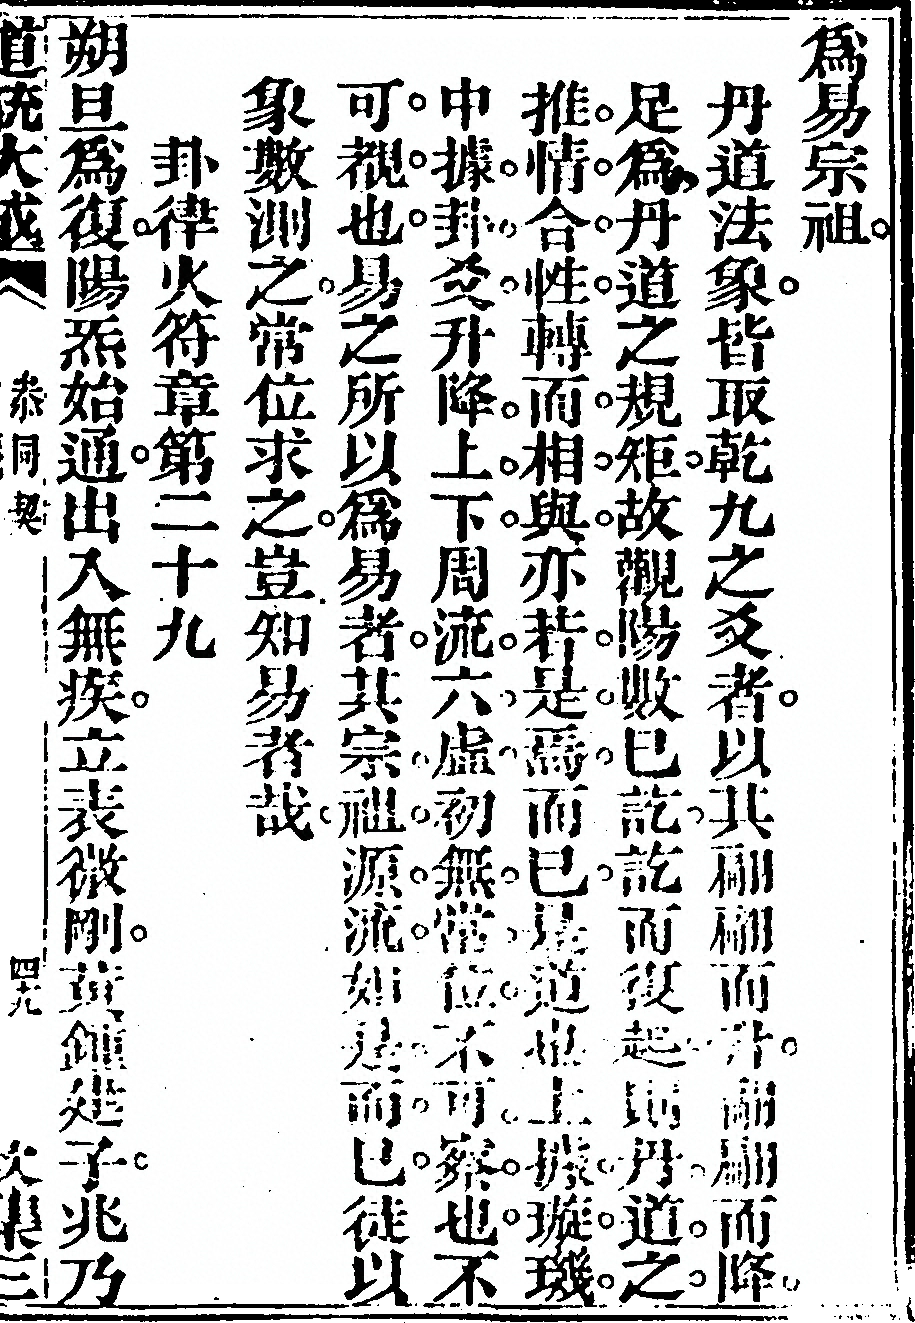 為易宗祖
丹道法象皆取乾九之爻者以其翩翩而升翩翩而降
足為丹道之規矩故觀陽數已訖訖而復起則丹道之
推情合性轉而相與亦若是焉而已是道也上據璇璣
中據卦爻升降上下周流六虛初無常位不可察也不
可覩也易之所以為易者其宗祖源流如是而已徒以
象數測之常位求之豈知易者哉
卦律火符章第二十九
朔旦為復陽炁始通出入無疾立表微剛黃鍾建子兆乃
道統大成
叅同契
四九
次集三